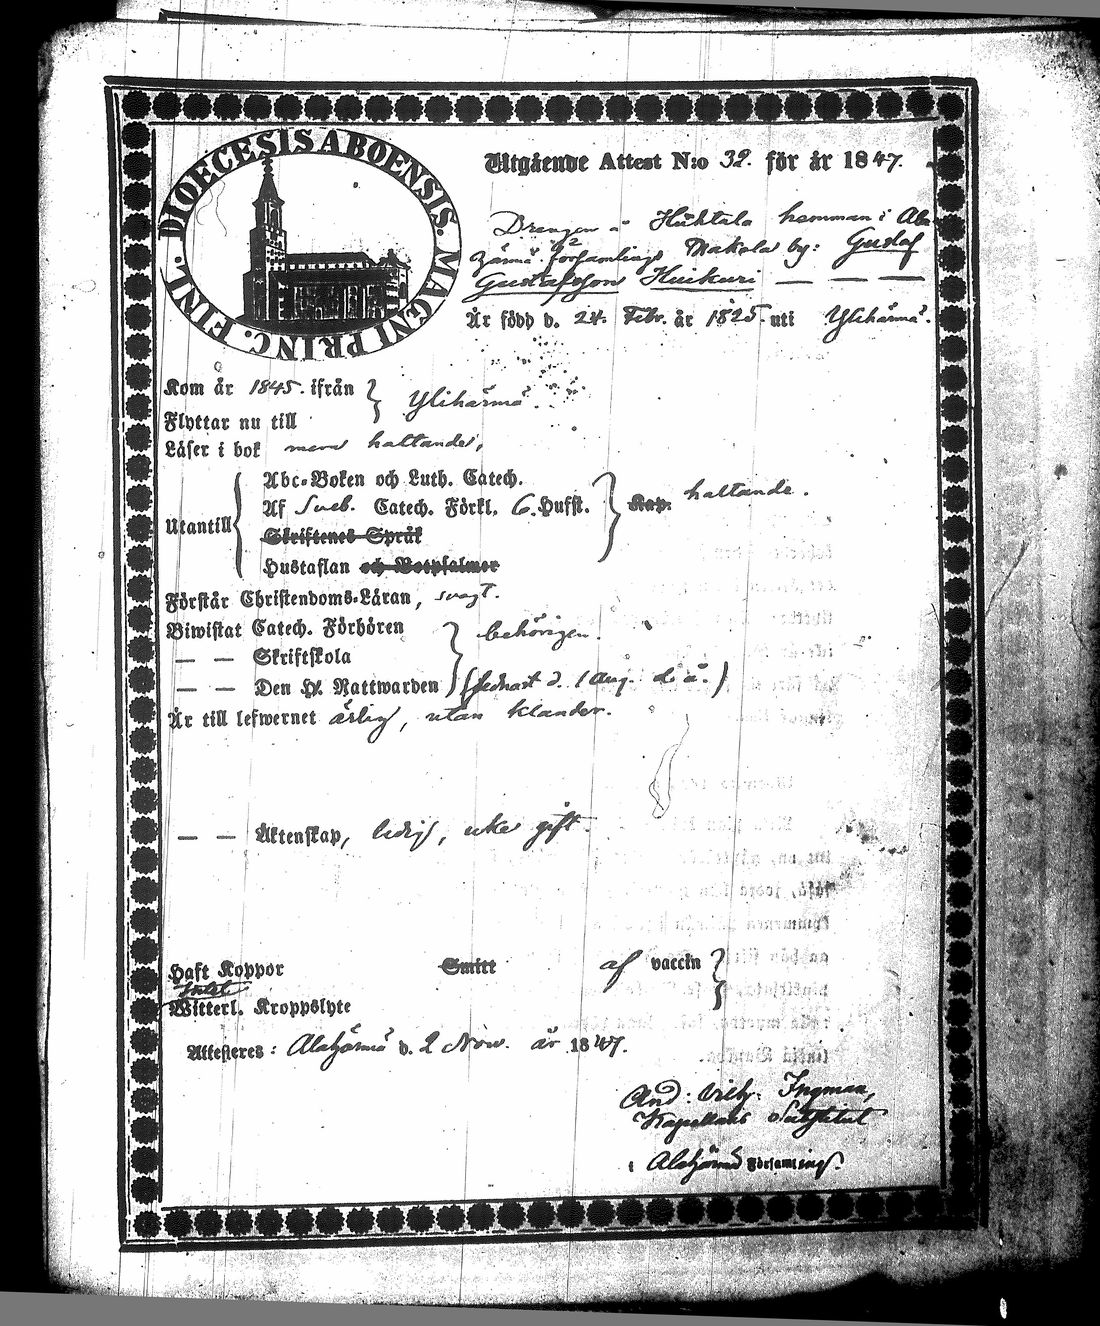 DIOECESIS ABOENSIS. MAGNI PRINC. FINL.
Utgående Attest N:o 32. för år 1847.
Drengen å Huhtala hemman i Ala
härmä församlings Makola by: Gustaf
Gustafsson Huikuri — — —
Är född d. 24. Febr. år 1825. uti Ylihärmä.
Kom år 1845. ifrån } Ylihärmä.
Flyttar nu till
Läser i bok mera haltande,
Utantill { Abc-Boken och Luth. Catech.
Af Sveb. Catech. Förkl. 6. Hufst. } Kap. haltande.
Skriftenes Språk
Hustaflan och Botpsalmer
Förstår Christendoms-Läran, svagt.
Biwistat Catech. Förhören } behörigen.
— — Skriftskola
— — Den H. Nattwarden (sednast d. 1 Aug. d. å.)
Är till lefwernet ärlig, utan klander.
— — Äktenskap, ledig, icke gift.
Haft Koppor Smitt af vaccin }
Witterl. Kroppslyte
Attesteres: Alahärmä d. 2 Nov. år 1847.
And: Vilh: Ingman,
Kapellans Substitut
i Alahärmä Församling.